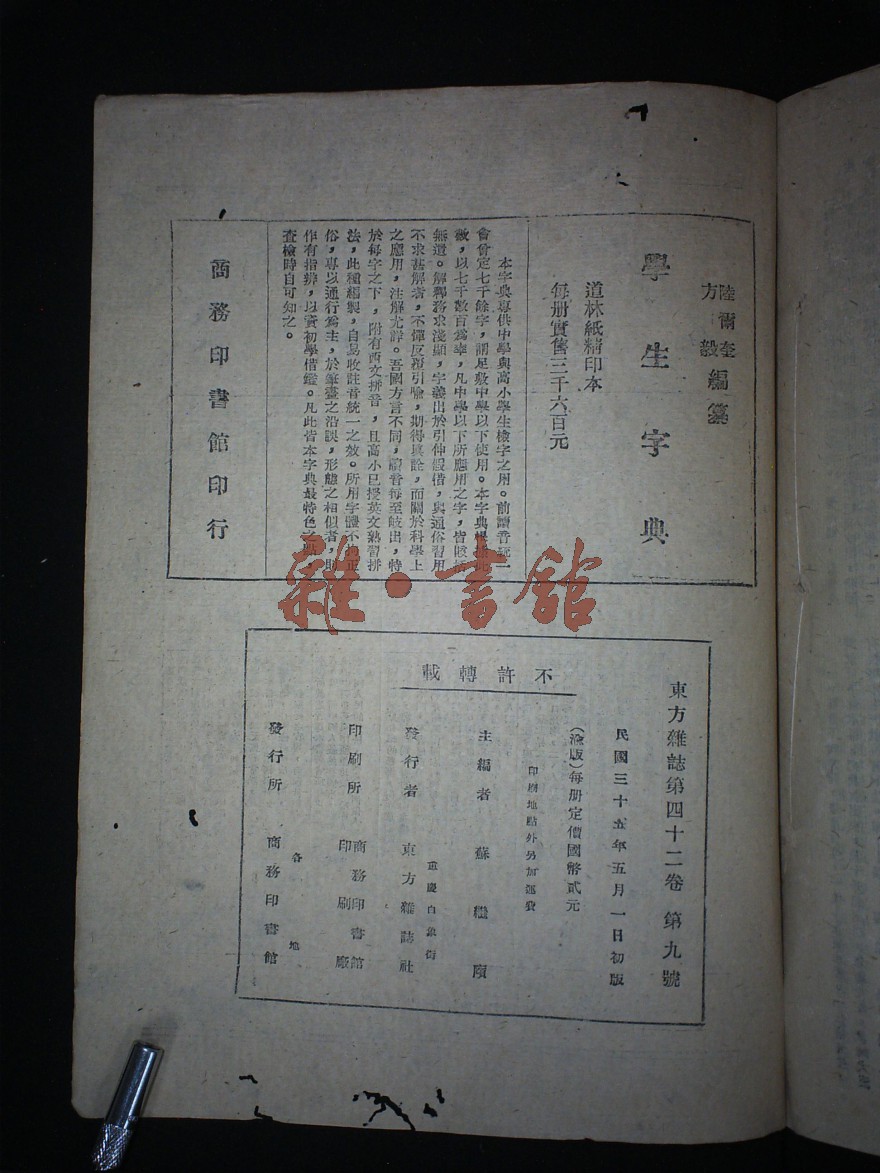 陸爾奎
方毅
編纂
學生字典
道林紙精印本
每册實售三千六百元
本字典專供中學與高小學生檢字之用。前讀音統一
會曾定七千餘字,謂足敷中學以下使用。本字典
數,以七千數百爲率,凡中學以下所應用之字,皆賅括
無遺。解釋務求淺顯,字義出於引伸假借,與通俗習用
不求甚解者,不憚反覆引喻,期得眞詮,而關於科學上
之應用,注解尤詳。吾國方言不同,讀音每至歧出,特
於每字之下,附有西文拼音,且高小已授英文熟習拼
法,此種編製,自易收註音統一之效。所用字體不
俗,專以通行爲主,於筆畫之沿誤,形體之相似者,
作有指辨,以資初學借鑑。凡此皆本字典最特色之
查檢時自可知之。
商務印書館印行
東方雜誌第四十二卷 第九號
民國三十五年五月一日初版
(渝版)每册定價國幣貳元
印刷地點外另加運費
不許轉載
主編者 蘇繼廎
重慶白象街
發行者 東方雜誌社
印刷所 商務印書館印刷廠
各地
發行所 商務印書館
雜·書館